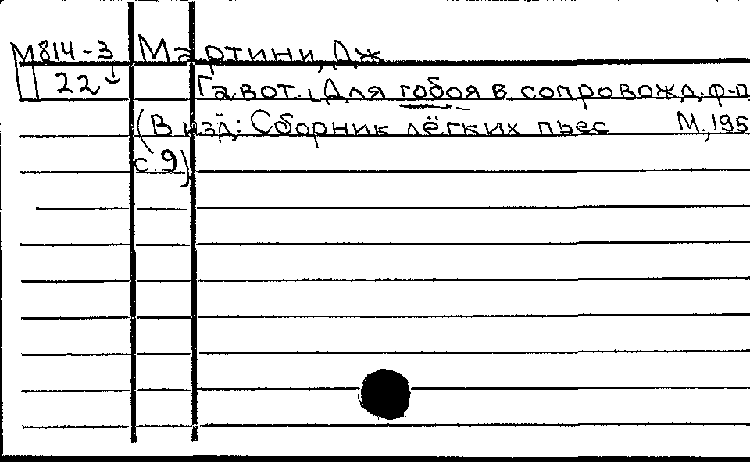 М814-3 Мартини, Дж
22 Гавот. Для гобоя в сопровожд. ф-п
(В изд: Сборник лёгких пьес М, 195
с 9)